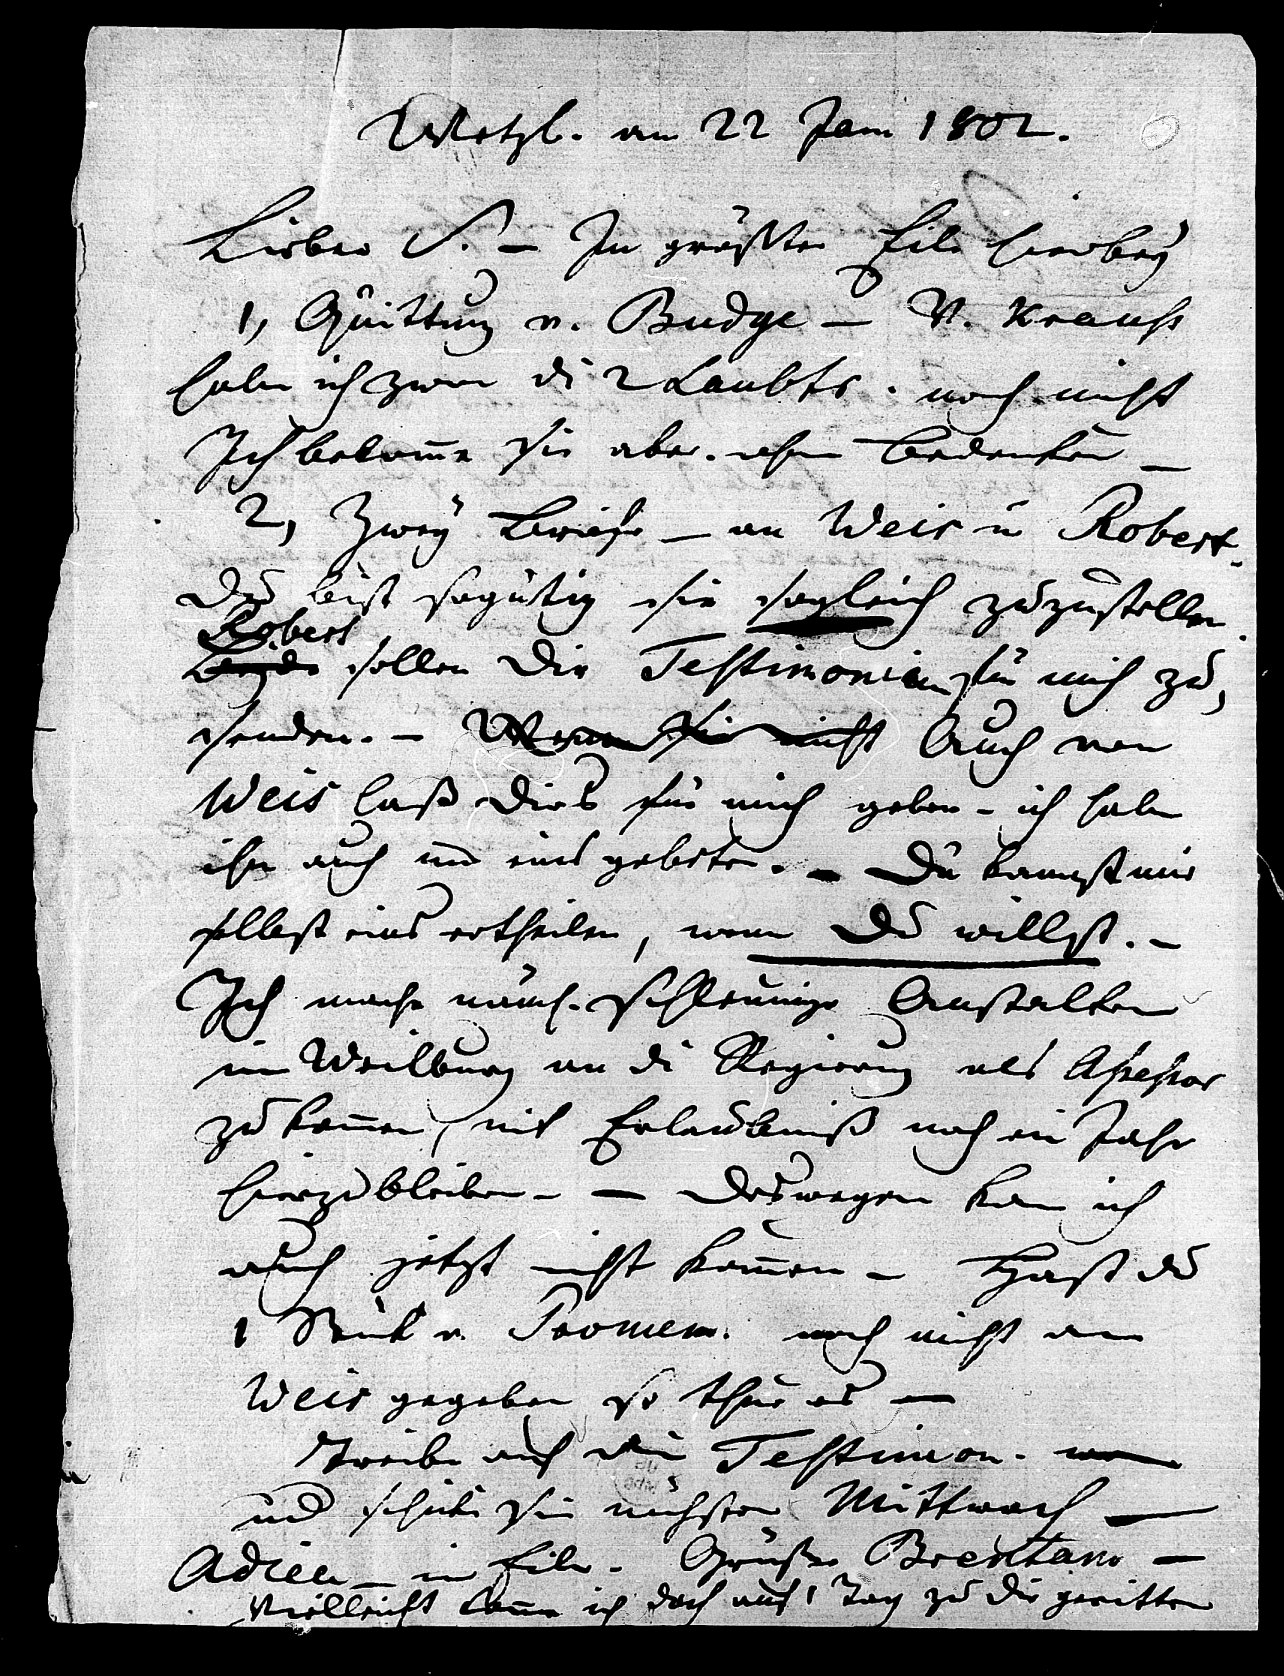 Wetzl. am 22 Jan 1802.
Lieber S. – In größter Eile hierbey
1, Quittung v. Budge – V. Krauß
habe ich zwar di 2 Laubth. noch nicht
Ich bekomme sie aber ohne Bedenken –
2, Zwey Briefe – an Weis u Robert.
Du bist so gütig sie sogleich zuzustellen.
Robert
Beyde sollen Dir Testimonien für mich zu,
senden. – Wenn sie nicht Auch von
Weis laß Dirs für mich geben – ich habe
ihn auch um eins gebeten. – Du kannst mir
selbst eins ertheilen, wenn Du willst. –
Ich mache nämch. schleunige Anstalten
in Weilburg an di Regierung als Assessor
zu kommen, mit Erlaubniß noch ein Jahr
hierzubleiben – – Deswegen kan ich
auch jetzt nicht kommen – Hast du
1 Stück v. Promem. noch nicht an
Weis gegeben so thue es –
Treibe auf die Testimon.
und schicke sie nächsten Mittwoch –
Adieu – in Eile. Grüße Brentano –
Vielleicht komme ich doch auf 1 Tag zu dir geritten